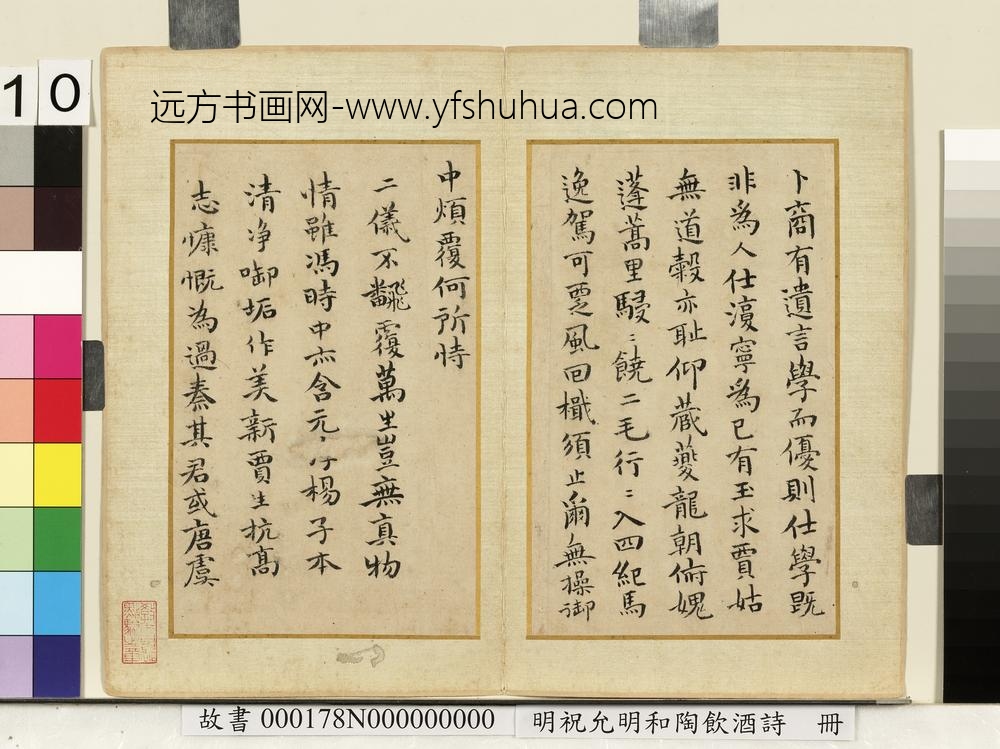 10
远方书画网-www.yfshuhua.com
卜商有遺言學而優則仕學既
非為人仕濅寧為已有玉求賈姑
無道穀亦恥仰蕆夔龍朝俯媿
蓬蒿里駸〻饒二毛行〻入四紀馬
逸駕可覂風回檝須止爾無操御
中煩覆何所恃
二儀不飜覆萬生豈無真物
情雖馮時中亦含元
楊子本
清淨啣垢作美新賈生抗高
志慷慨為過秦其君或唐虞
故書 000178N000000000
明祝允明和陶飲酒詩 冊